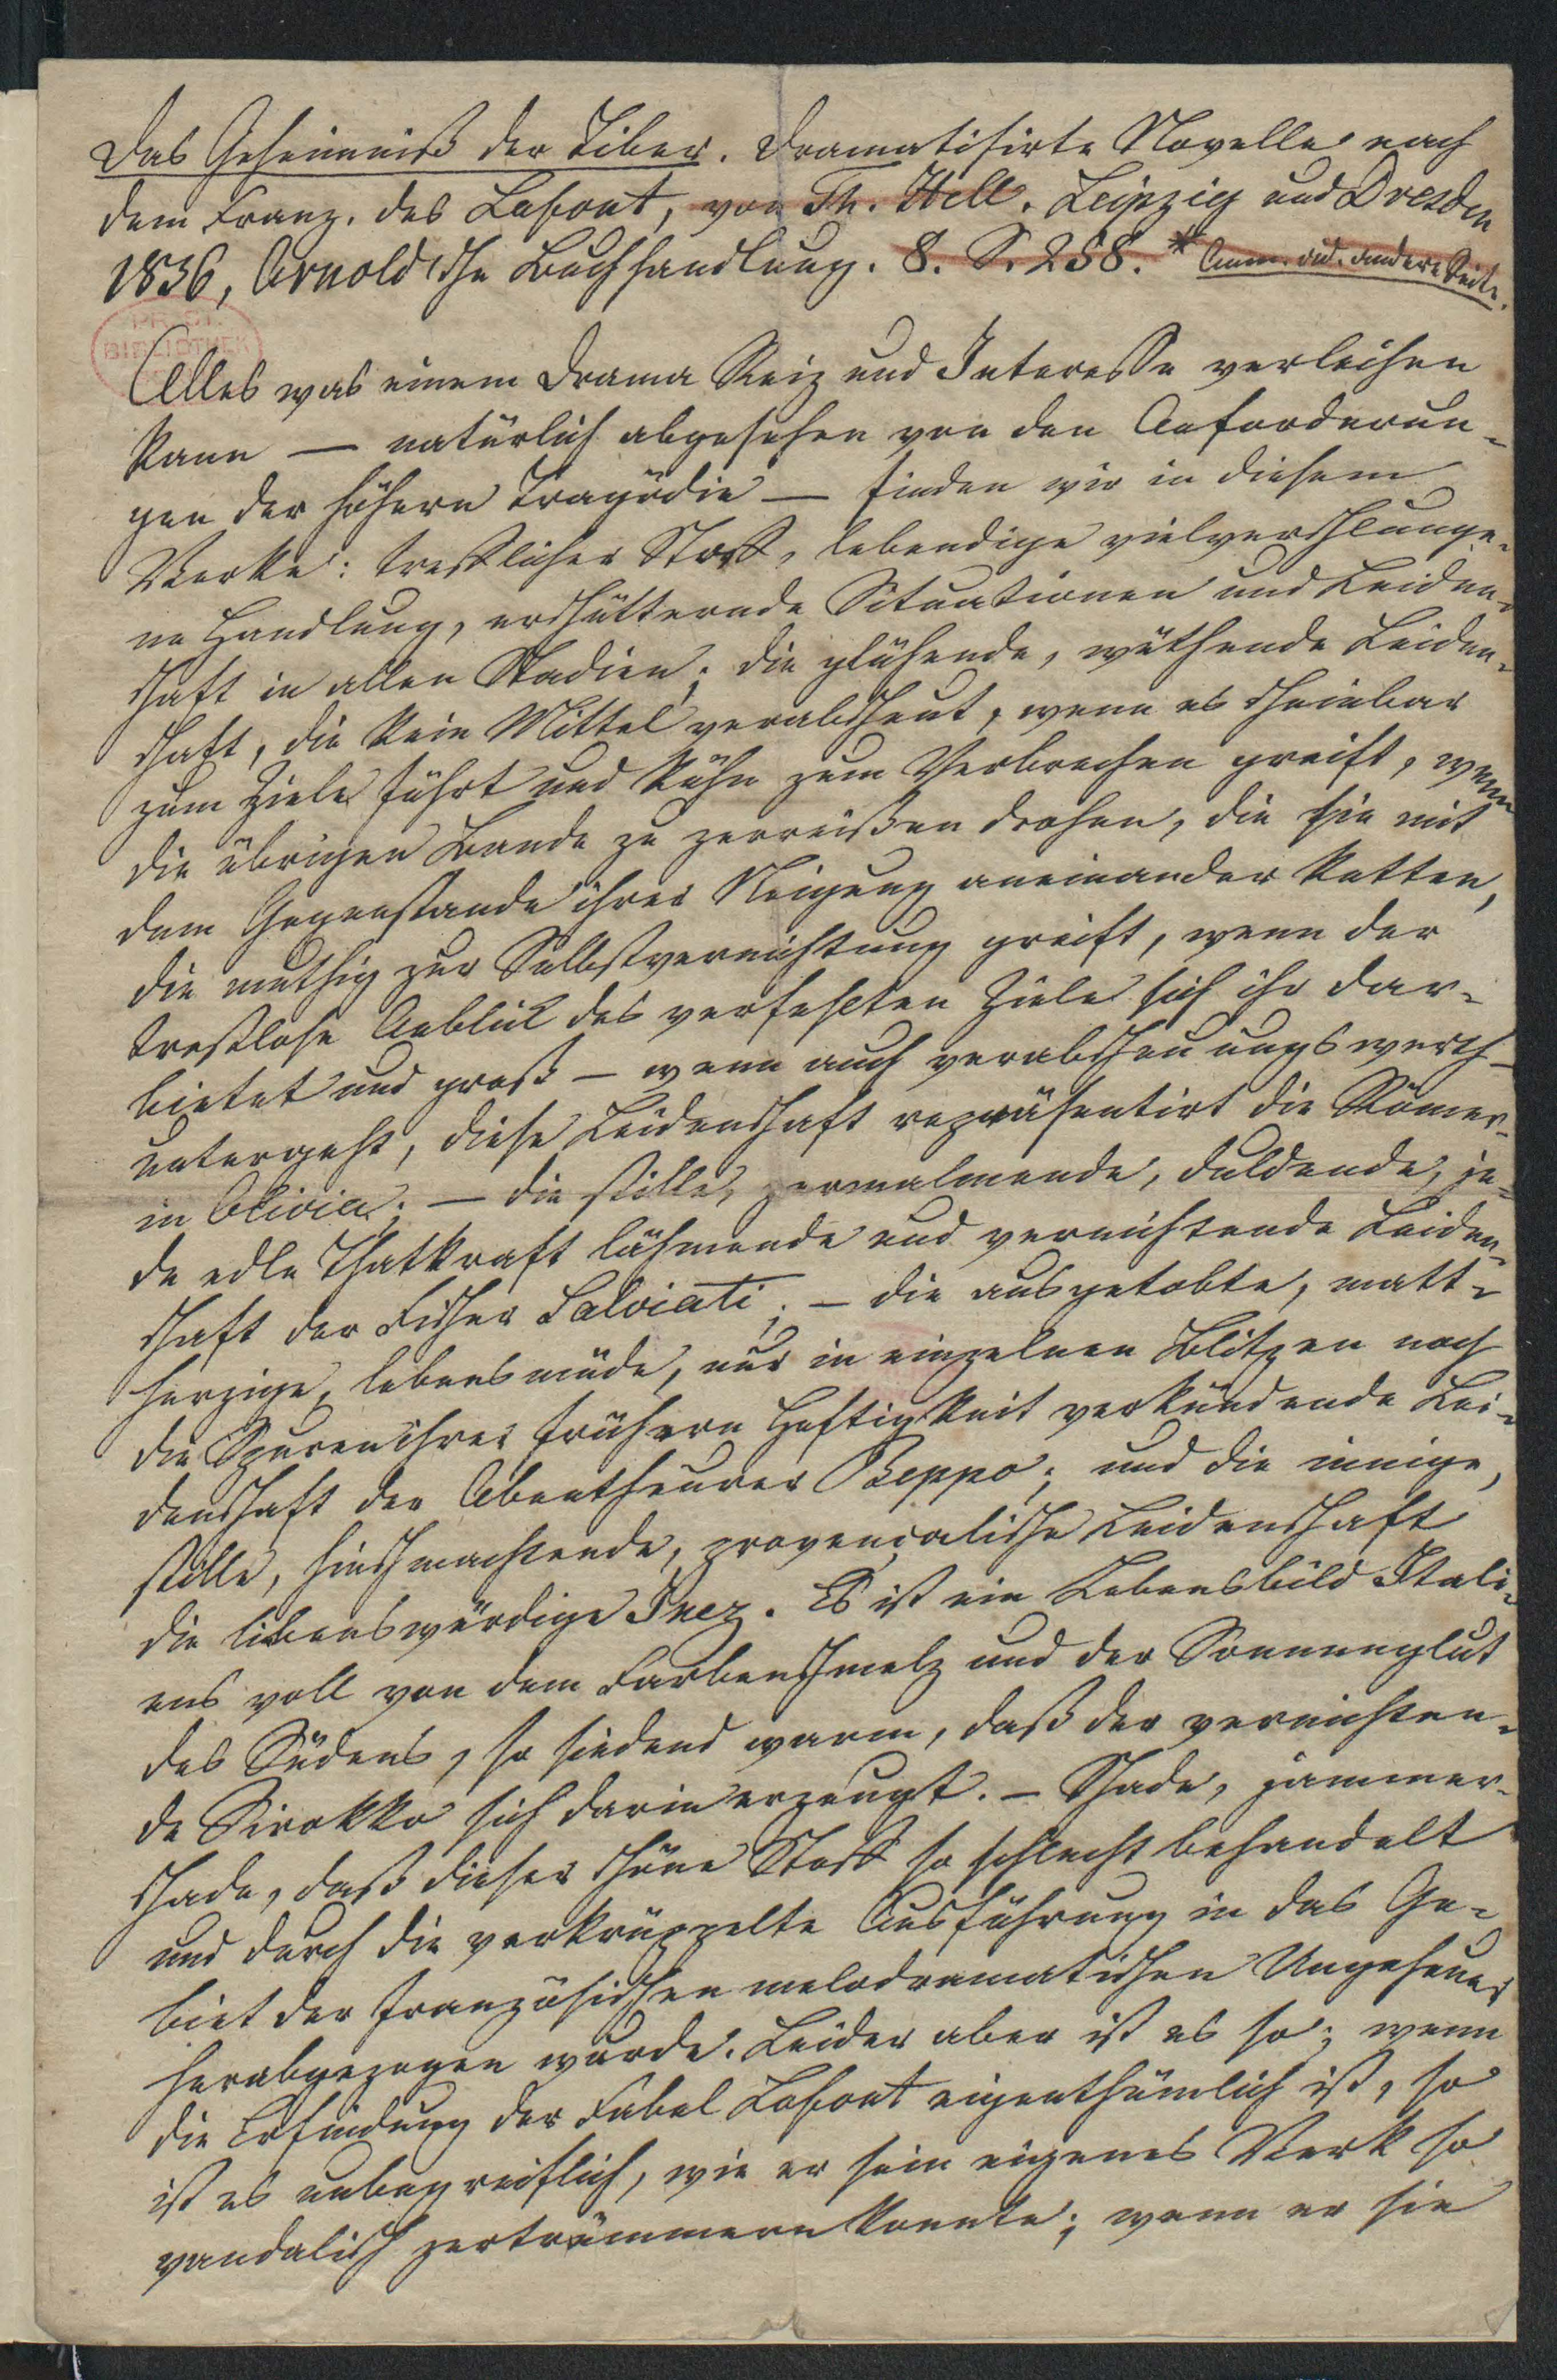 Das Geheimniß der Tiber. Dramatisirte Novelle nach
dem Franz. des Lafont, von Th. Hell. Leipzig und Dresden
1836, Arnoldsche Buchhandlung. 8. S. 258. * Anm. auf. andere Seite.
PR. ST.
BIBLIOTHEK
Alles was einem Drama Reiz und Interesse verleihen
kann — natürlich abgesehen von den Anforderun-
gen der höhern Tragödie — finden wir in diesem
Werke: trefflicher Stoff, lebendige vielverschlunge-
ne Handlung, erschütternde Situationen und Leiden-
schaft in allen Stadien; die glühende, wüthende Leiden-
schaft, die kein Mittel verabscheut, wenn es scheinbar
zum Ziele führt und kühn zum Verbrechen greift, wenn
die übrigen Bande zu zerreißen drohen, die sie mit
dem Gegenstande ihrer Neigung aneinander ketten,
die muthig zur Selbstvernichtung greift, wenn der
trostlose Anblick des verfehlten Ziels sich ihr dar-
bietet und groß — wenn auch verabscheuungswerth —
untergeht, diese Leidenschaft repräsentirt die Römer-
in Olivia; — die stille, zermalmende, duldende, je-
de edle Thatkraft lähmende und vernichtende Leiden-
schaft der Fischer Salviati; — die ausgetobte, matt-
herzige, lebensmüde, nur in einzelnen Blitzen noch
die Spuren ihrer frühern Heftigkeit verkündende Lei-
denschaft der Abentheurer Beppo; und die innige,
stille, hinschmachtende, provençalische Leidenschaft
die liebenswürdige Inez. Es ist ein Lebensbild Itali-
ens voll von dem Farbenschmelz und der Sonnenglut
des Südens, so siedend warm, daß der vernichten-
de Sirokko sich darin erzeugt. — Schade, jammer-
schade, daß dieser schöne Stoff so schlecht behandelt
und durch die verkrüppelte Ausführung in das Ge-
biet der französischen melodramatischen Ungeheuer
herabgezogen wurde. Leider aber ist es so; wenn
die Erfindung der Fabel Lafont eigenthümlich ist, so
ist es unbegreiflich, wie er sein eigenes Werk so
vandalisch zertrümmern konnte; wenn er sie